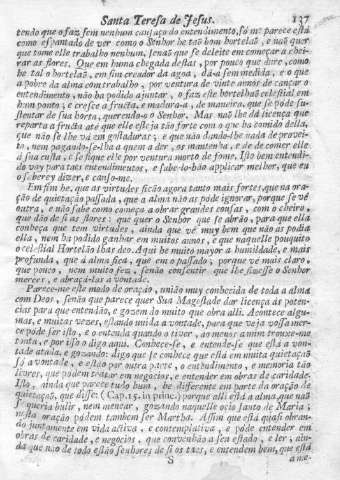 Santa Teresa de Jesus. 137
tendo que o faz sem nenhum cansaço do entendimento, só me parece está
como espantado de ver como o Senhor he tão bom hortelaõ, e naõ quer
que tome elle trabalho nenhum, senaõ que se deleite em começar a chei-
rar as flores. Que em huma chegada destas, por pouco que dure, como
he tal o hortelaõ, em fim creador da agoa, dá-a sem medida, e o que
a pobre da alma com trabalho, por ventura de vinte annos de cançar o
entendimento, não ha podido ajuntar, o faz este hortelhaõ celestial em
hum ponto; e cresce a fructa, e madura-a, de maneira, que se póde su-
stentar de sua horta, querendo-o o Senhor. Mas naõ lhe dá licença que
reparta a fructa até que elle esteja taõ forte com o que ha comido della,
que naõ se lhe vá em gostaduras; e que naõ dando-lhe nada de provei-
to, nem pagando-se-lha a quem a der, os mantenha, e dè de comer elle
á sua custa, e se fique elle por ventura morto de fome. Isto bem entendi-
do vay para taes entendimentos, e sabe-lo-hão applicar melhor, que eu
o saberey dizer, e canso-me.
Em fim he, que as virtudes ficão agora tanto mais fortes, que na ora-
ção de quietação passada, que a alma não as póde ignorar, porque se vé
outra, e não sabe como começa a obrar grandes cousas, com o cheiro
que dão de si as flores: que quer o Senhor que se abrão, para que ella
conheça que tem virtudes, ainda que vè muy bem que não as podia
ella, nem ha podido ganhar em muitos annos, e que naquelle pouquito
o celestial Hortelão lhas deo. Aqui he muito mayor a humildade, e mais
profunda, que á alma fica, que em o passado; porque vé mais claro,
que pouco, nem muito fez, senão consentir que lhe fizesse o Senhor
mercès, e abraçá-las a vontade.
Parece-me este modo de oração, união muy conhecida de toda a alma
com Deos, senão que parece quer Sua Magestade dar licença ás poten-
cias para que entendão, e gozem do muito que obra alli. Acontece algu-
mas, e muitas vezes, estando unida a vontade, para que veja vossa mer-
cè póde ser isto, e o entenda quando o tiver, ao menos a mim trouxe-me
tonta, e por isso o digo aqui. Conhece-se, e entende-se que está a von-
tade atada, e gozando: digo que se conhece que está em muita quietação
só a vontade, e estão por outra parte, o entendimento, e memoria tão
livres, que podem tratar em negocios, e entender em obras de caridade.
Isto, ainda que parece tudo hum, he differente em parte da oração de
quietação, que disse: (Cap.15. in princ.) porque alli está a alma, que naõ
se queria bulir, nem menear, gozando naquelle ocio santo de Maria;
nesta oração pódem tambem ser Martha. Assim que está quasi obran-
do juntamente em vida activa, e contemplativa, e póde entender em
obras de caridade, e negocios, que convenhão a seu estado, e ler; ain-
da que não de todo estão senhores de si os taes, e entendem bem, que está
S a me-